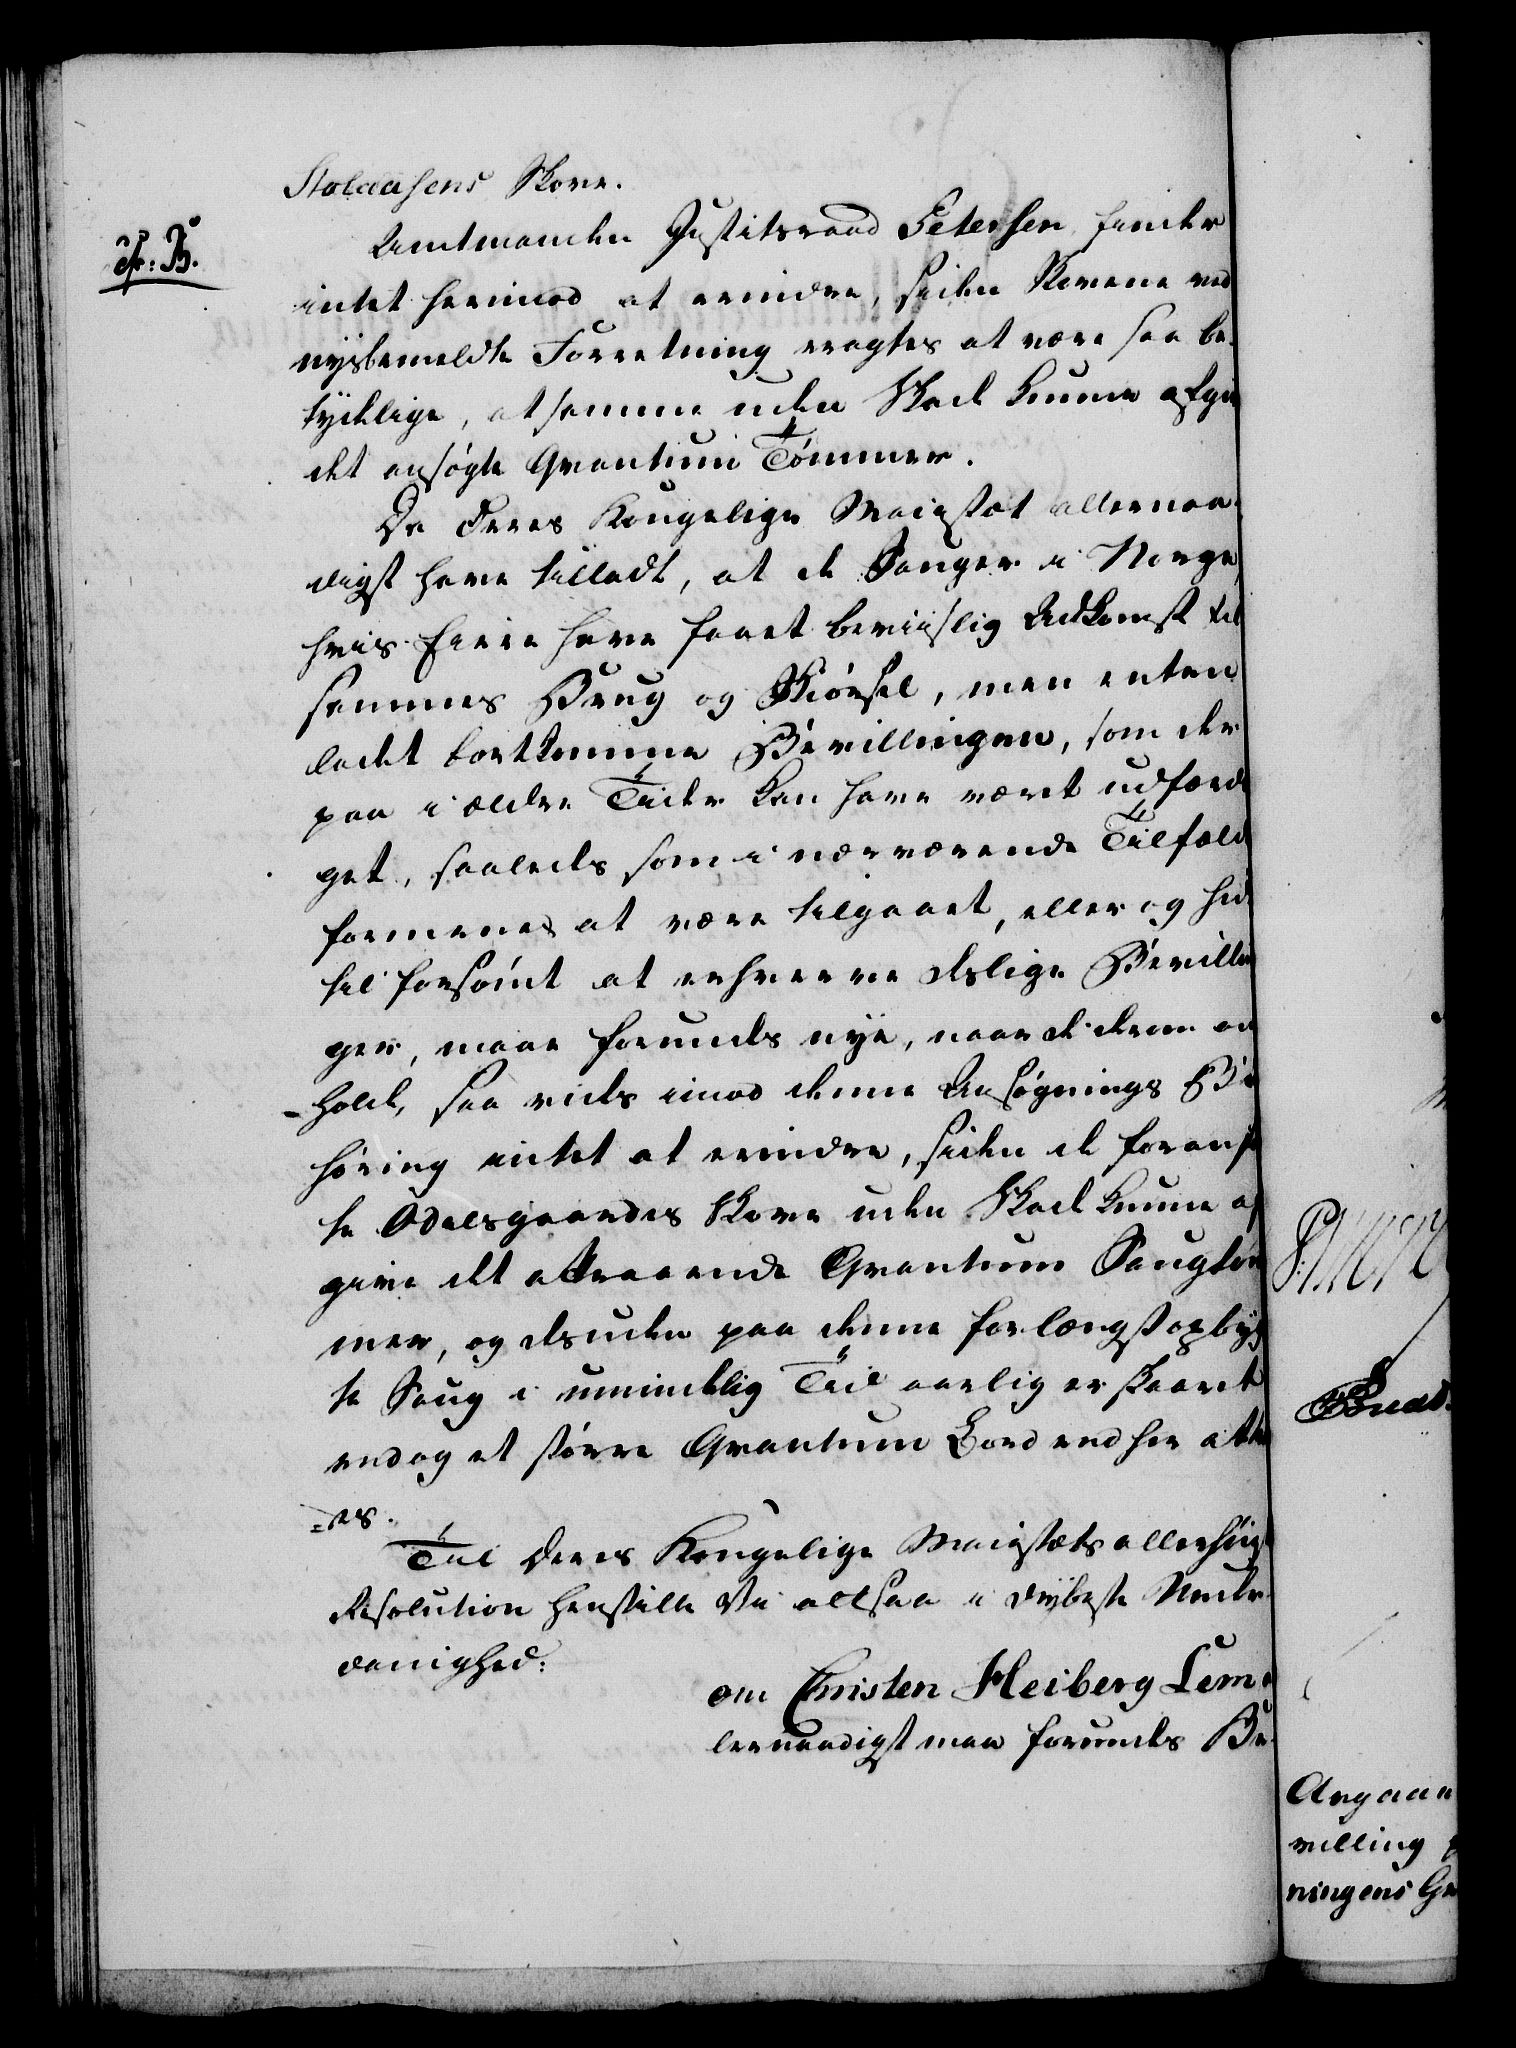 Stolaasens Skove.
cfr: B.
Amtmanden Justitsraad Petersen finder
intet herimod at erindre, siden Skovene ved
nysbemeldte Forretning eragtes at være saa be-
tydelige, at samme uden Skade kunne afgive
det ansøgte Qvantum Tømmer.
Da Deres Kongelige Maiestæt allernaa-
digst have tilladt, at de Sauger i Norge,
hvis Eiere have faaet beviislig Adkomst til
sammes Brug og Skiørsel, men enten
ladet bortkomme Bevillingen, som der-
paa i ældre Tider kan have været udfærdi-
get, saaledes som i nærværende Tilfælde
formenes at være tilgaaet, eller og hid-
til forsømt at erhverve deslige Bevillin-
ger, maae forundes nye, naar de derom an-
holde, saa vides imod denne Ansøgnings Bøn-
høring intet at erindre, siden de foranfør-
te Odelsgaardes Skove uden Skade kunne af-
give det attraaende Qvantum Saugtøm-
mer, og desuden paa denne for længst opbyg-
te Saug i umindelig Tid aarlig er skaaret
endog et større Qvantum Bord end her attraa-
=es.
Til Deres Kongelige Maiestæts allerhøieste
Resolution henstille Vi altsaa i dybeste Under-
danighed:
om Christen Heiberg Lem
lernaadigst maa forundes Be-
Avgaan
villing
ningens